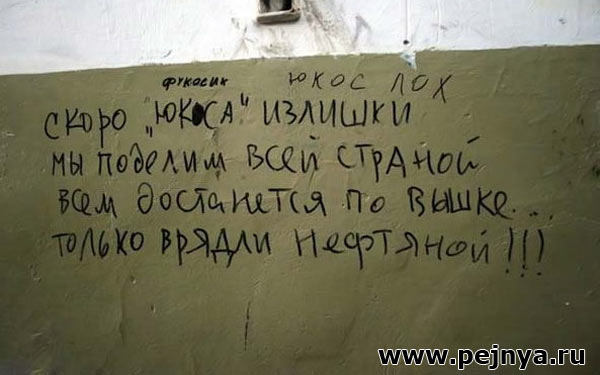 фукосик
ЮКОС ЛОХ
СКОРО „ЮКОСА" ИЗЛИШКИ
МЫ ПОДЕЛИМ ВСЕЙ СТРАНОЙ
ВСЕМ ДОСТАНЕТСЯ ПО ВЫШКЕ...
ТОЛЬКО ВРЯДЛИ НЕФТЯНОЙ!!!
www.pejnya.ru